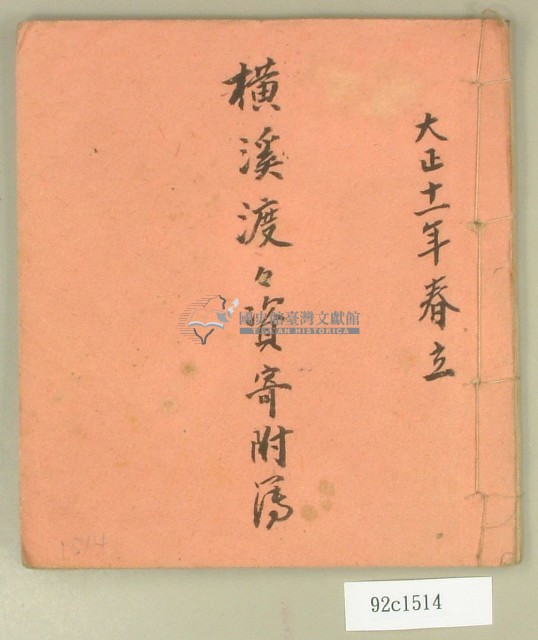 大正十一年春立
橫溪渡々資寄附簿
國史館臺灣文獻館
TAIWAN HISTORICA
1514
92c1514